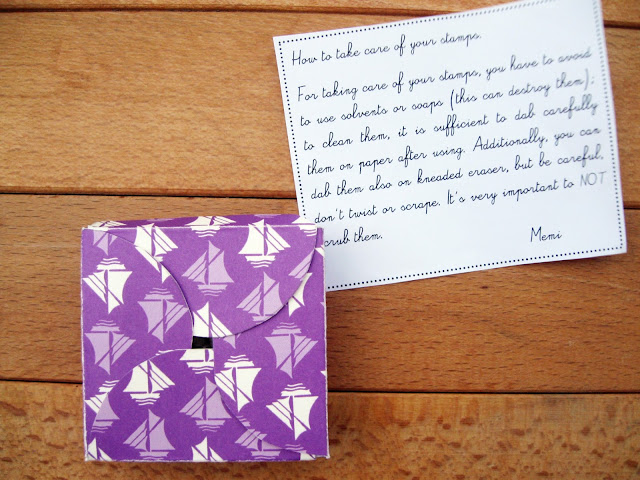 How to take care of your stamps.
For taking care of your stamps, you have to avoid
to use solvents or soaps (this can destroy them);
to clean them, it is sufficient to dab carefully
them on paper after using. Additionally, you can
dab them also on kneaded eraser, but be careful,
don't twist or scrape. It's very important to NOT
scrub them.
Memi